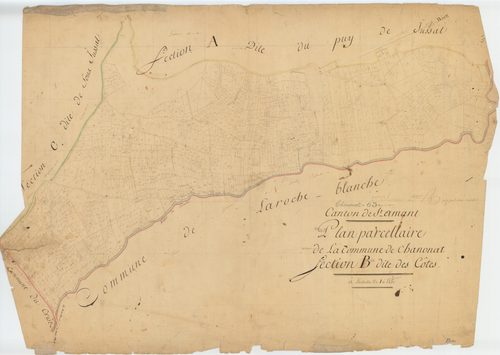 Section A Dite du puy de Jussat
Section C dite de Sous Jussat
Commune de Laroche-blanche
Commune du Crest
Canton de St amant
Plan parcellaire
de La Commune de Chanonat
Section B dite des Côtes